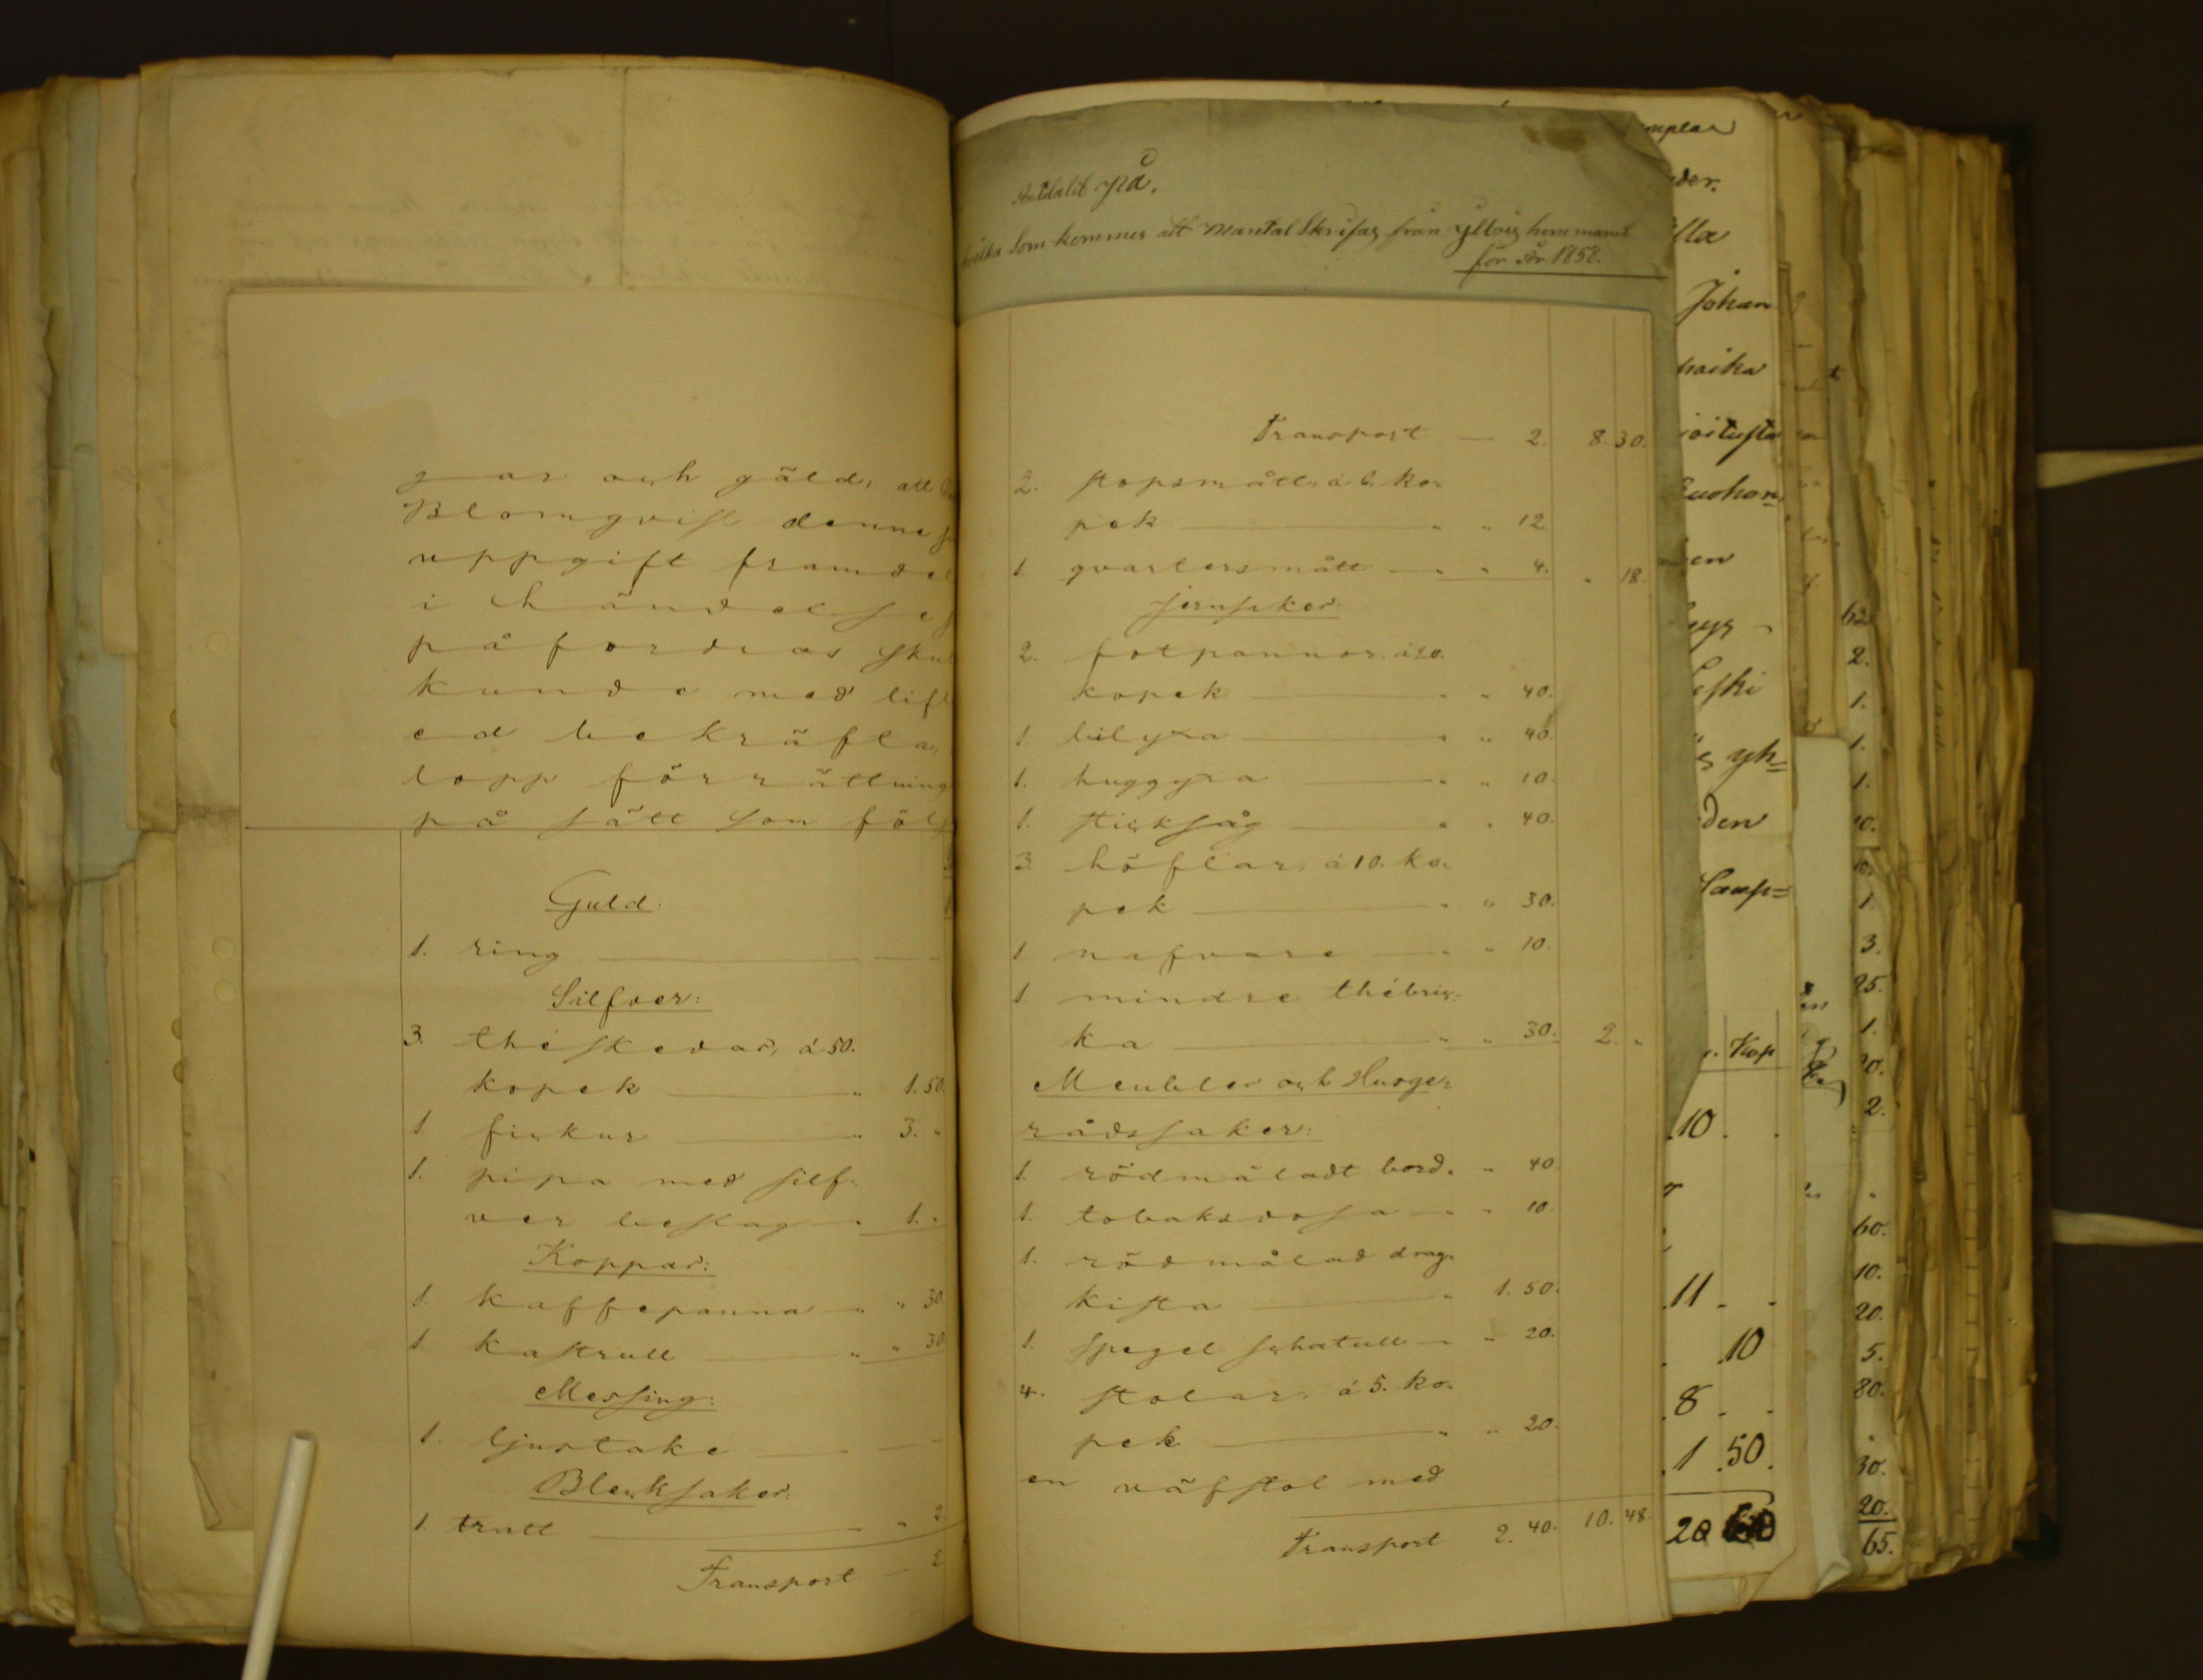 gar och gäld, att
Blomqvist denna
uppgift framdel
i händelse
påfordras skul
kunde med lifl
ed bekräfta,
lopp förrättning
på sätt som följ
Guld:
1. ring
Silfver:
3. théskedar, á 50.
kopek " 1.50
1. fickur " 3. "
1. pipa med silf-
ver beslag " 1. "
Koppar:
1. kaffepanna " " 30
1. kastrull " " 30
Messing:
1. ljustake
Bleck saker:
1. tratt " 2.
Transport 2
Antalet på,
hvilka som kommer att Mantal Skrifas från
för År 1858.
Transport — 2. 8. 30.
2. stopsmått, á 6. ko-
pek " " 12.
1. qvartersmått " " 4. " 18.
Jernsaker:
2. fotpannor, á 20.
kopek " " 40.
1 bilyxa " " 40.
1. huggyxa " " 10.
1. sticksåg " " 40.
3 höflar, á 10. ko-
pek " " 30.
1 nafvare " " 10.
1. mindre thébric-
ka " " 30. 2. "
Meubler och Husge-
rådssaker:
1. rödmåladt bord " " 40.
1. tobaksdosa " " 10.
1. rödmålad drag-
kista " 1. 50.
1. spegel schatull " " 20.
4. stolar, á 5. ko-
pek " " 20.
en väfstol med
Transport 2. 40. 10. 48.
mplar
der.
Johan
haika
en
eski
yh=
den
Kop
10
11
10
8
1 50
20
62.
2.
1.
1.
1.
1.
3.
25.
1.
2.
60.
10.
20.
5.
80.
30.
20.
65.